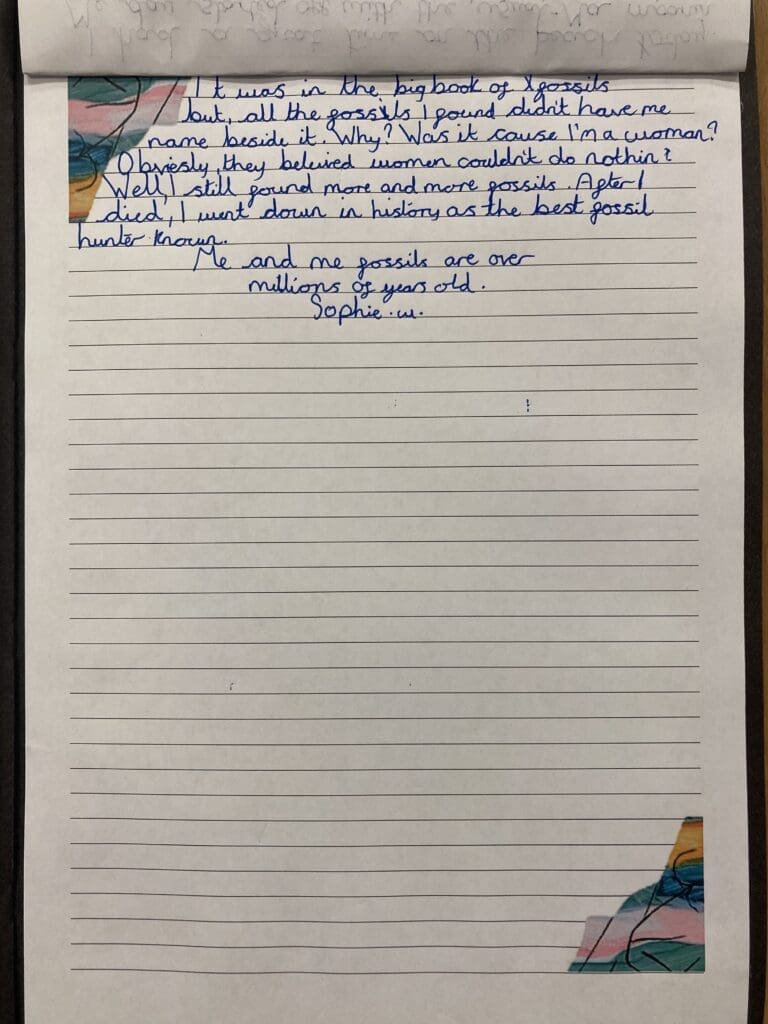 It was in the big book of fossils
but, all the fossils I found didn't have me
name beside it. Why? Was it cause I'm a woman?
Obviesly, they beleived women couldn't do nothin?
Well, I still found more and more fossils. After I
died, I went down in history as the best fossil
hunter known.
Me and me fossils are over
millions of years old.
Sophie.w.